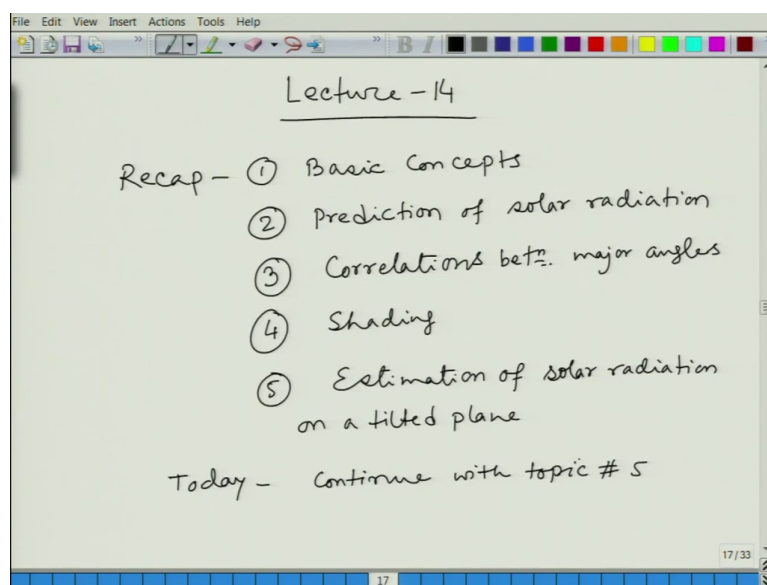 File Edit View Insert Actions Tools Help
B I
Lecture - 14
Recap - ① Basic Concepts
② Prediction of solar radiation
③ Correlations betn. major angles
④ Shading
⑤ Estimation of solar radiation
on a tilted plane
Today - Continue with topic # 5
17/33
17